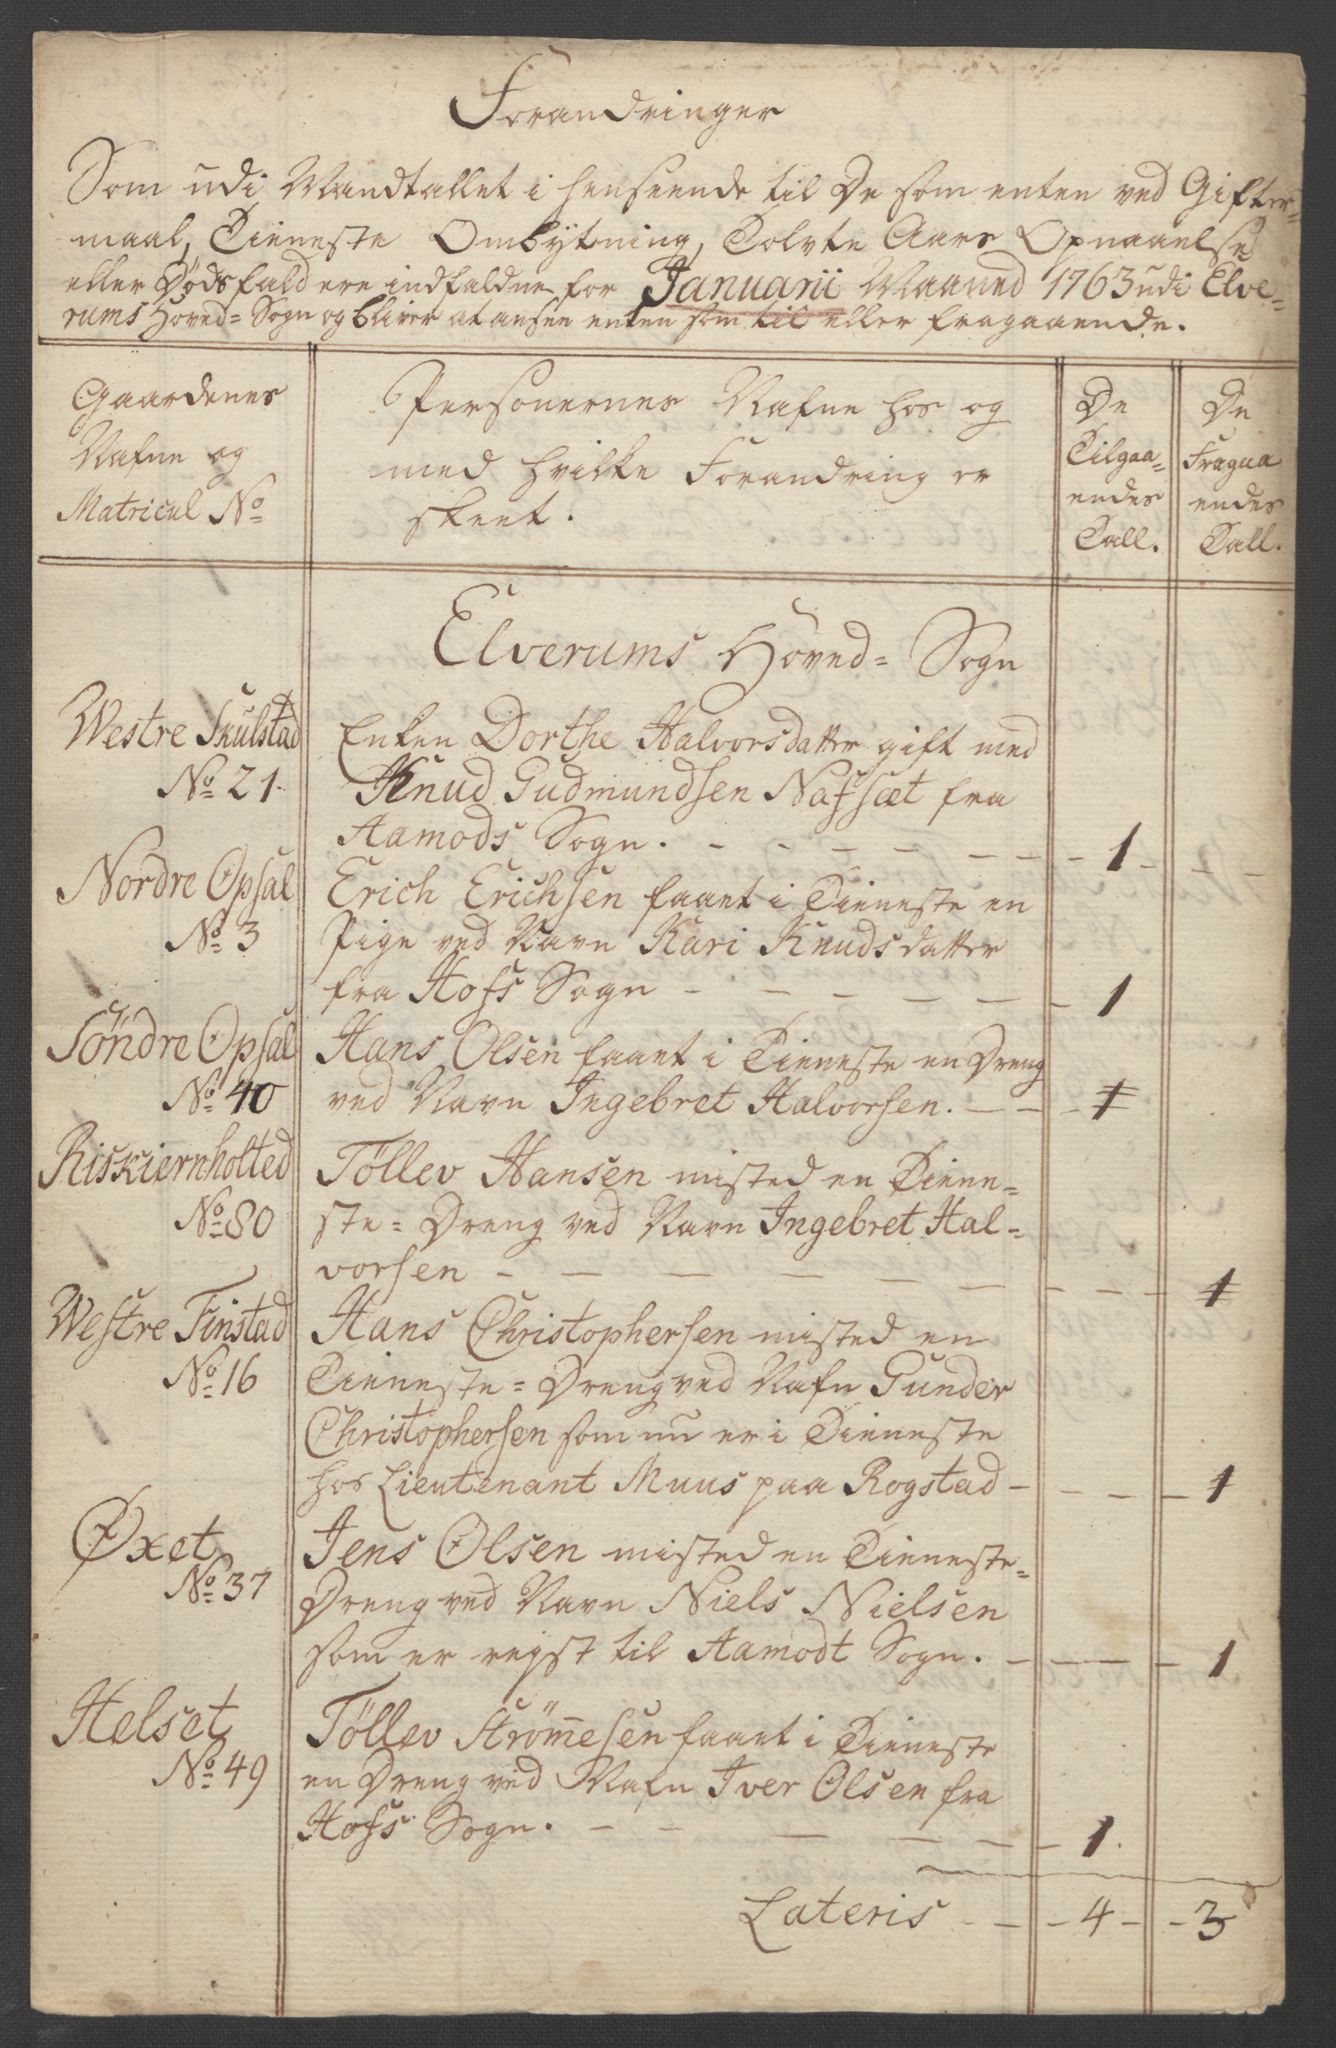 Forandringer
Som udi Mandtallet i henseende til De som enten ved Gifter-
maal, Tieneste Ombÿtning, Tolvte Aars Opnaaelse
eller Dødsfald ere indfaldne for Januarii Maaned 1763 udi Elve-
rums Hoved= Sogn og bliver at ansee enten som til eller fragaaende.
Gaardenes
Nafne og
Matricul No
Personernes Nafne hos og
med hvilke Forandring er
skeet.
De
Tilgaa=
endes
Tall.
De
Fragaa
endes
Tall.
Elverums Hoved= Sogn
Westre Skulstad
No 21.
Enken Dorthe Halvorsdatter gift med
Knud Gudmundsen Nafsæt fra
Aamods Sogn. - - - - - - - 1 - - -
Nordre Opsal
No 3
Erich Erichsen faaet i Tieneste en
Pige ved Navn Kari Knudsdatter
fra Hofs Sogn - - - - - - - 1
Søndre Opsal
No 40
Hans Olsen faaet i Tieneste en Dreng
ved Navn Ingebret Halvorsen. - - - 1
Riskiernholted
No 80
Töllev Hansen misted en Tiene=
ste= Dreng ved Navn Ingebret Hal-
vorsen - - - - - - - - - 1
Westre Finstad
No 16
Hans Christophersen misted en
Tieneste= Dreng ved Nafn Gunder
Christophersen som nu er i Tieneste
hos Lieutenant Muus paa Rogstad - - - - 1
Øxet
No 37
Jens Olsen misted en Tieneste=
Dreng ved Navn Niels Nielsen
som er rejst til Aamodt Sogn. - - - - 1
Helset
No 49
Töllev Strömesen faaet i Tieneste
en Dreng ved Nafn Iver Olsen fra
Hofs Sogn. - - - - - - 1.
Lateris - - - 4 - - 3